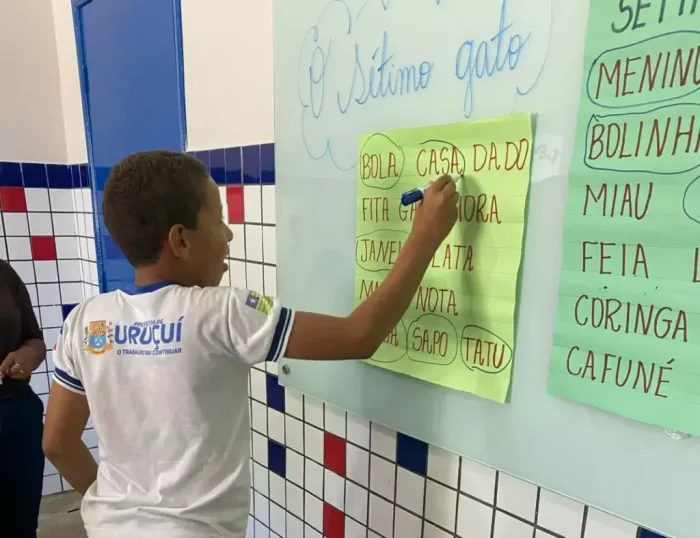 O Sétimo gato
BOLA CASA DADO
FITA GA
JANE LATA
NOTA
SAPO TATU
MENIN
BOLINHA
MIAU
FEIA
CORINGA
CAFUNÉ
PREFEITURA DE
URUÇUÍ
O TRABALHO VAI CONTINUAR